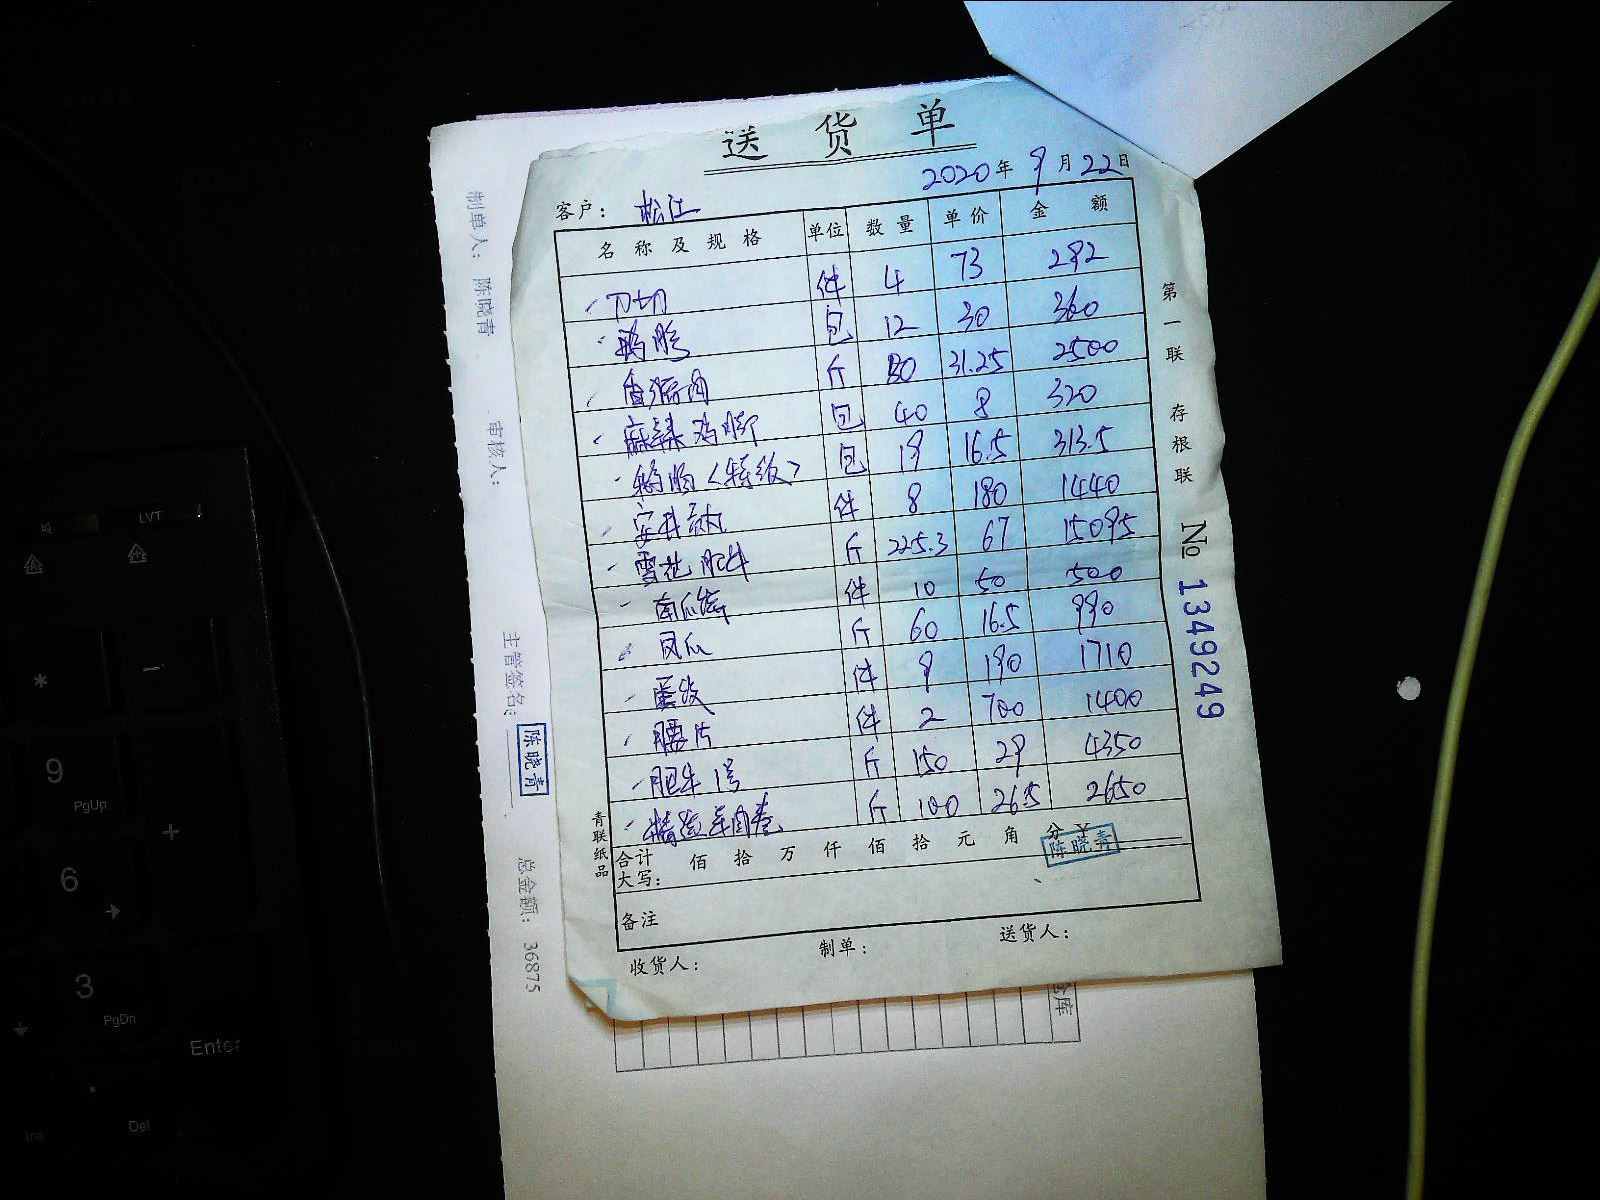 送货单
2020年9月22日
客户：松江
名称及规格 单位 数量 单价 金额
刀切 件 4 73 292
鸭肠 包 12 30 360
斤 80 31.25 2500
麻辣鸡脚 包 40 8 320
鹅肠（特级） 包 19 16.5 313.5
安井 件 8 180 1440
雪花肥牛 斤 225.3 67 15095
南瓜 件 10 50 500
凤爪 斤 60 16.5 990
蛋饺 件 9 190 1710
腰片 件 2 700 1400
肥牛1号 斤 150 29 4350
精选羊肉卷 斤 100 26.5 2650
合计大写： 佰 拾 万 仟 佰 拾 元 角 分 ￥
陈晓青
备注
收货人： 制单： 送货人：
第一联 存根联
№ 1349249
青联纸品
制单人：陈晓青
审核人：
主管签名：
陈晓青
总金额：36875
仓库
LVT
*
9
PgUp
+
6
3
PgDn
Enter
Ins
Del